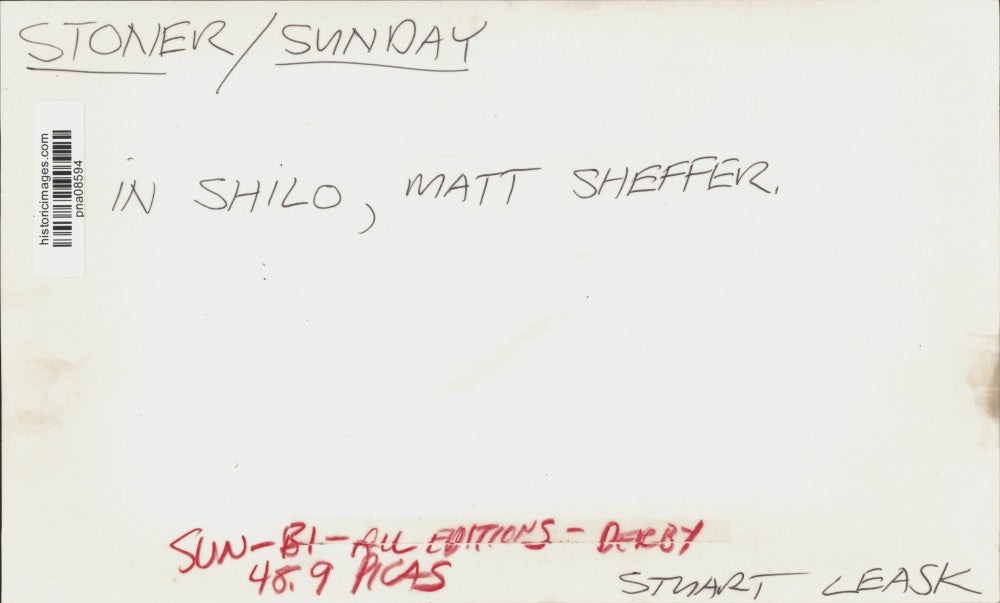 STONER / SUNDAY
historicimages.com
pna08594
IN SHILO, MATT SHEFFER.
SUN-B1-ALL EDITIONS-DERBY
48.9 PICAS
STUART LEASK